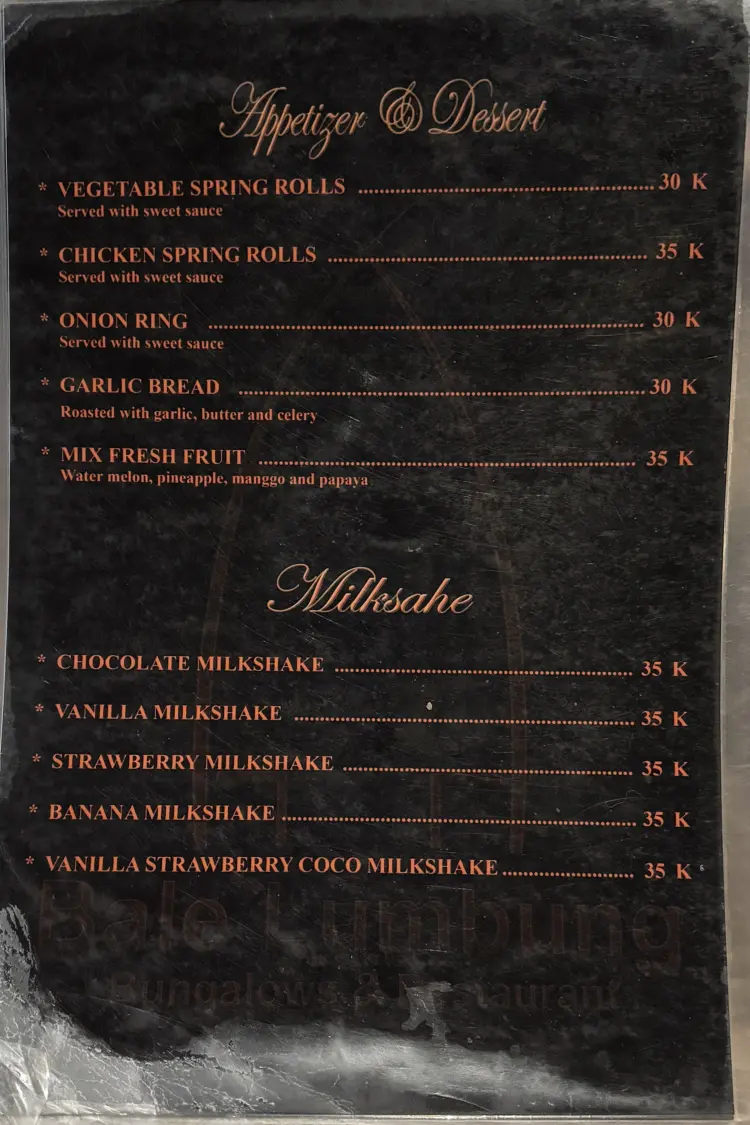 Appetizer & Dessert
* VEGETABLE SPRING ROLLS ........................ 30 K
Served with sweet sauce
* CHICKEN SPRING ROLLS ........................ 35 K
Served with sweet sauce
* ONION RING ........................ 30 K
Served with sweet sauce
* GARLIC BREAD ........................ 30 K
Roasted with garlic, butter and celery
* MIX FRESH FRUIT ........................ 35 K
Water melon, pineapple, manggo and papaya
Milksahe
* CHOCOLATE MILKSHAKE ........................ 35 K
* VANILLA MILKSHAKE ........................ 35 K
* STRAWBERRY MILKSHAKE ........................ 35 K
* BANANA MILKSHAKE ........................ 35 K
* VANILLA STRAWBERRY COCO MILKSHAKE ........................ 35 K
Bale Lumbung
Bungalows & Restaurant